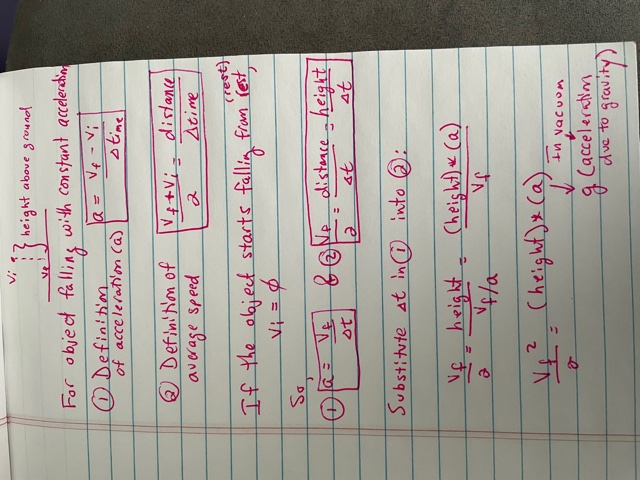 Vi
height above ground
Vf
For object falling with constant acceleration
① Definition of acceleration (a) a = Vf - Vi / Δtime
② Definition of average speed Vf + Vi / 2 = distance / Δtime
(rest)
If the object starts falling from rest,
Vi = ∅
So,
① a = Vf / Δt & ② Vf / 2 = distance / Δt = height / Δt
Substitute Δt in ① into ②:
Vf / 2 = height / Vf/a = (height) * (a) / Vf
Vf² / 2 = (height) * (a)
In vacuum
g (acceleration
due to gravity)